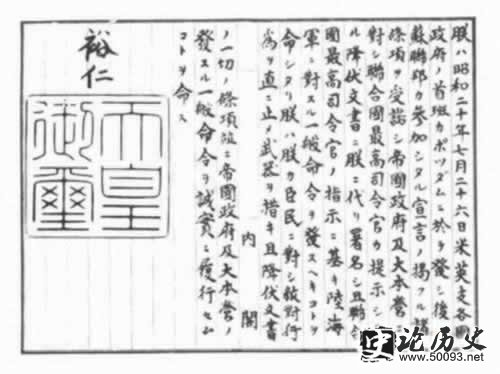 朕ハ昭和二十年七月二十六日米英支各國
政府ノ首班カポツダムニ於テ發シ後
蘇聯邦カ參加シタル宣言ノ掲クル諸
條項ヲ受諾シ帝國政府及大本營ニ
對シ聯合國最高司令官カ提示シ
ル降伏文書ニ朕ニ代リ署名シ且聯合
國最高司令官ノ指示ニ基キ陸海
軍ニ對スル一般命令ヲ發スヘキコトヲ
命シタリ朕ハ朕カ臣民ニ對シ敵對行
爲ヲ直ニ止メ武器ヲ措キ且降伏文書
內閣
ノ一切ノ條項竝ニ帝國政府及大本營ノ
發スル一般命令ヲ誠實ニ履行セム
コトヲ命ス
裕仁
天皇
御璽
论历史
www.50093.net